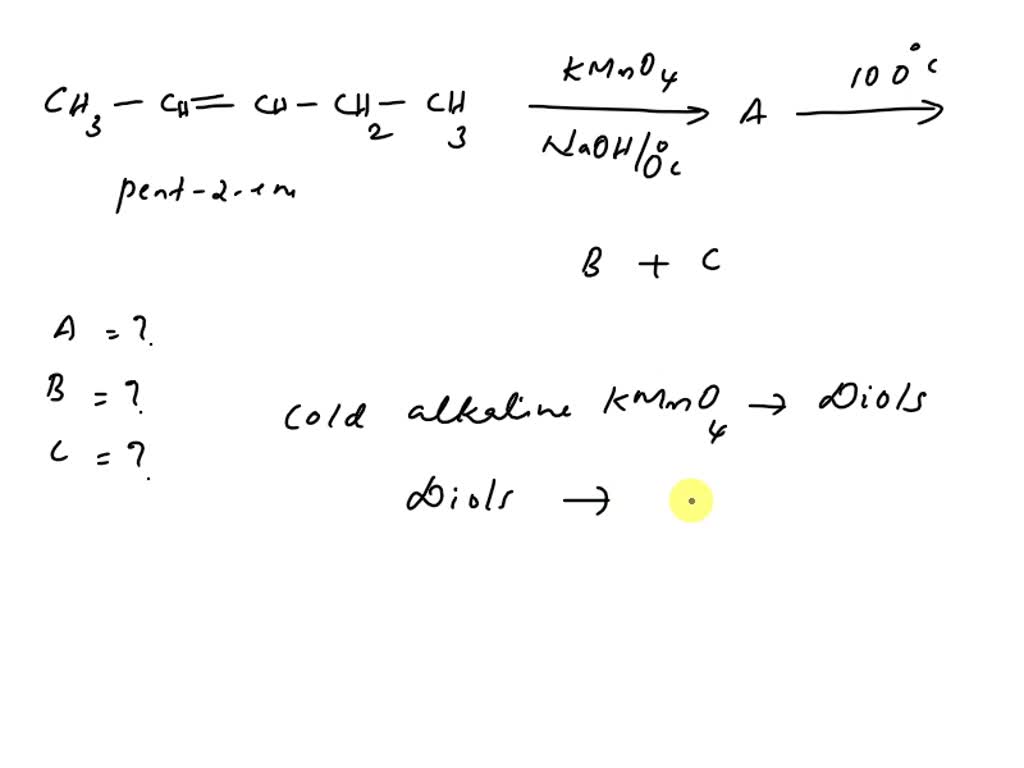 CH3 – CH = CH – CH2 – CH3 KMnO4 NaOH/0°C A 100°C
pent-2-en
B + C
A = ?
B = ?
C = ?
Cold alkaline KMnO4 → Diols
Diols →